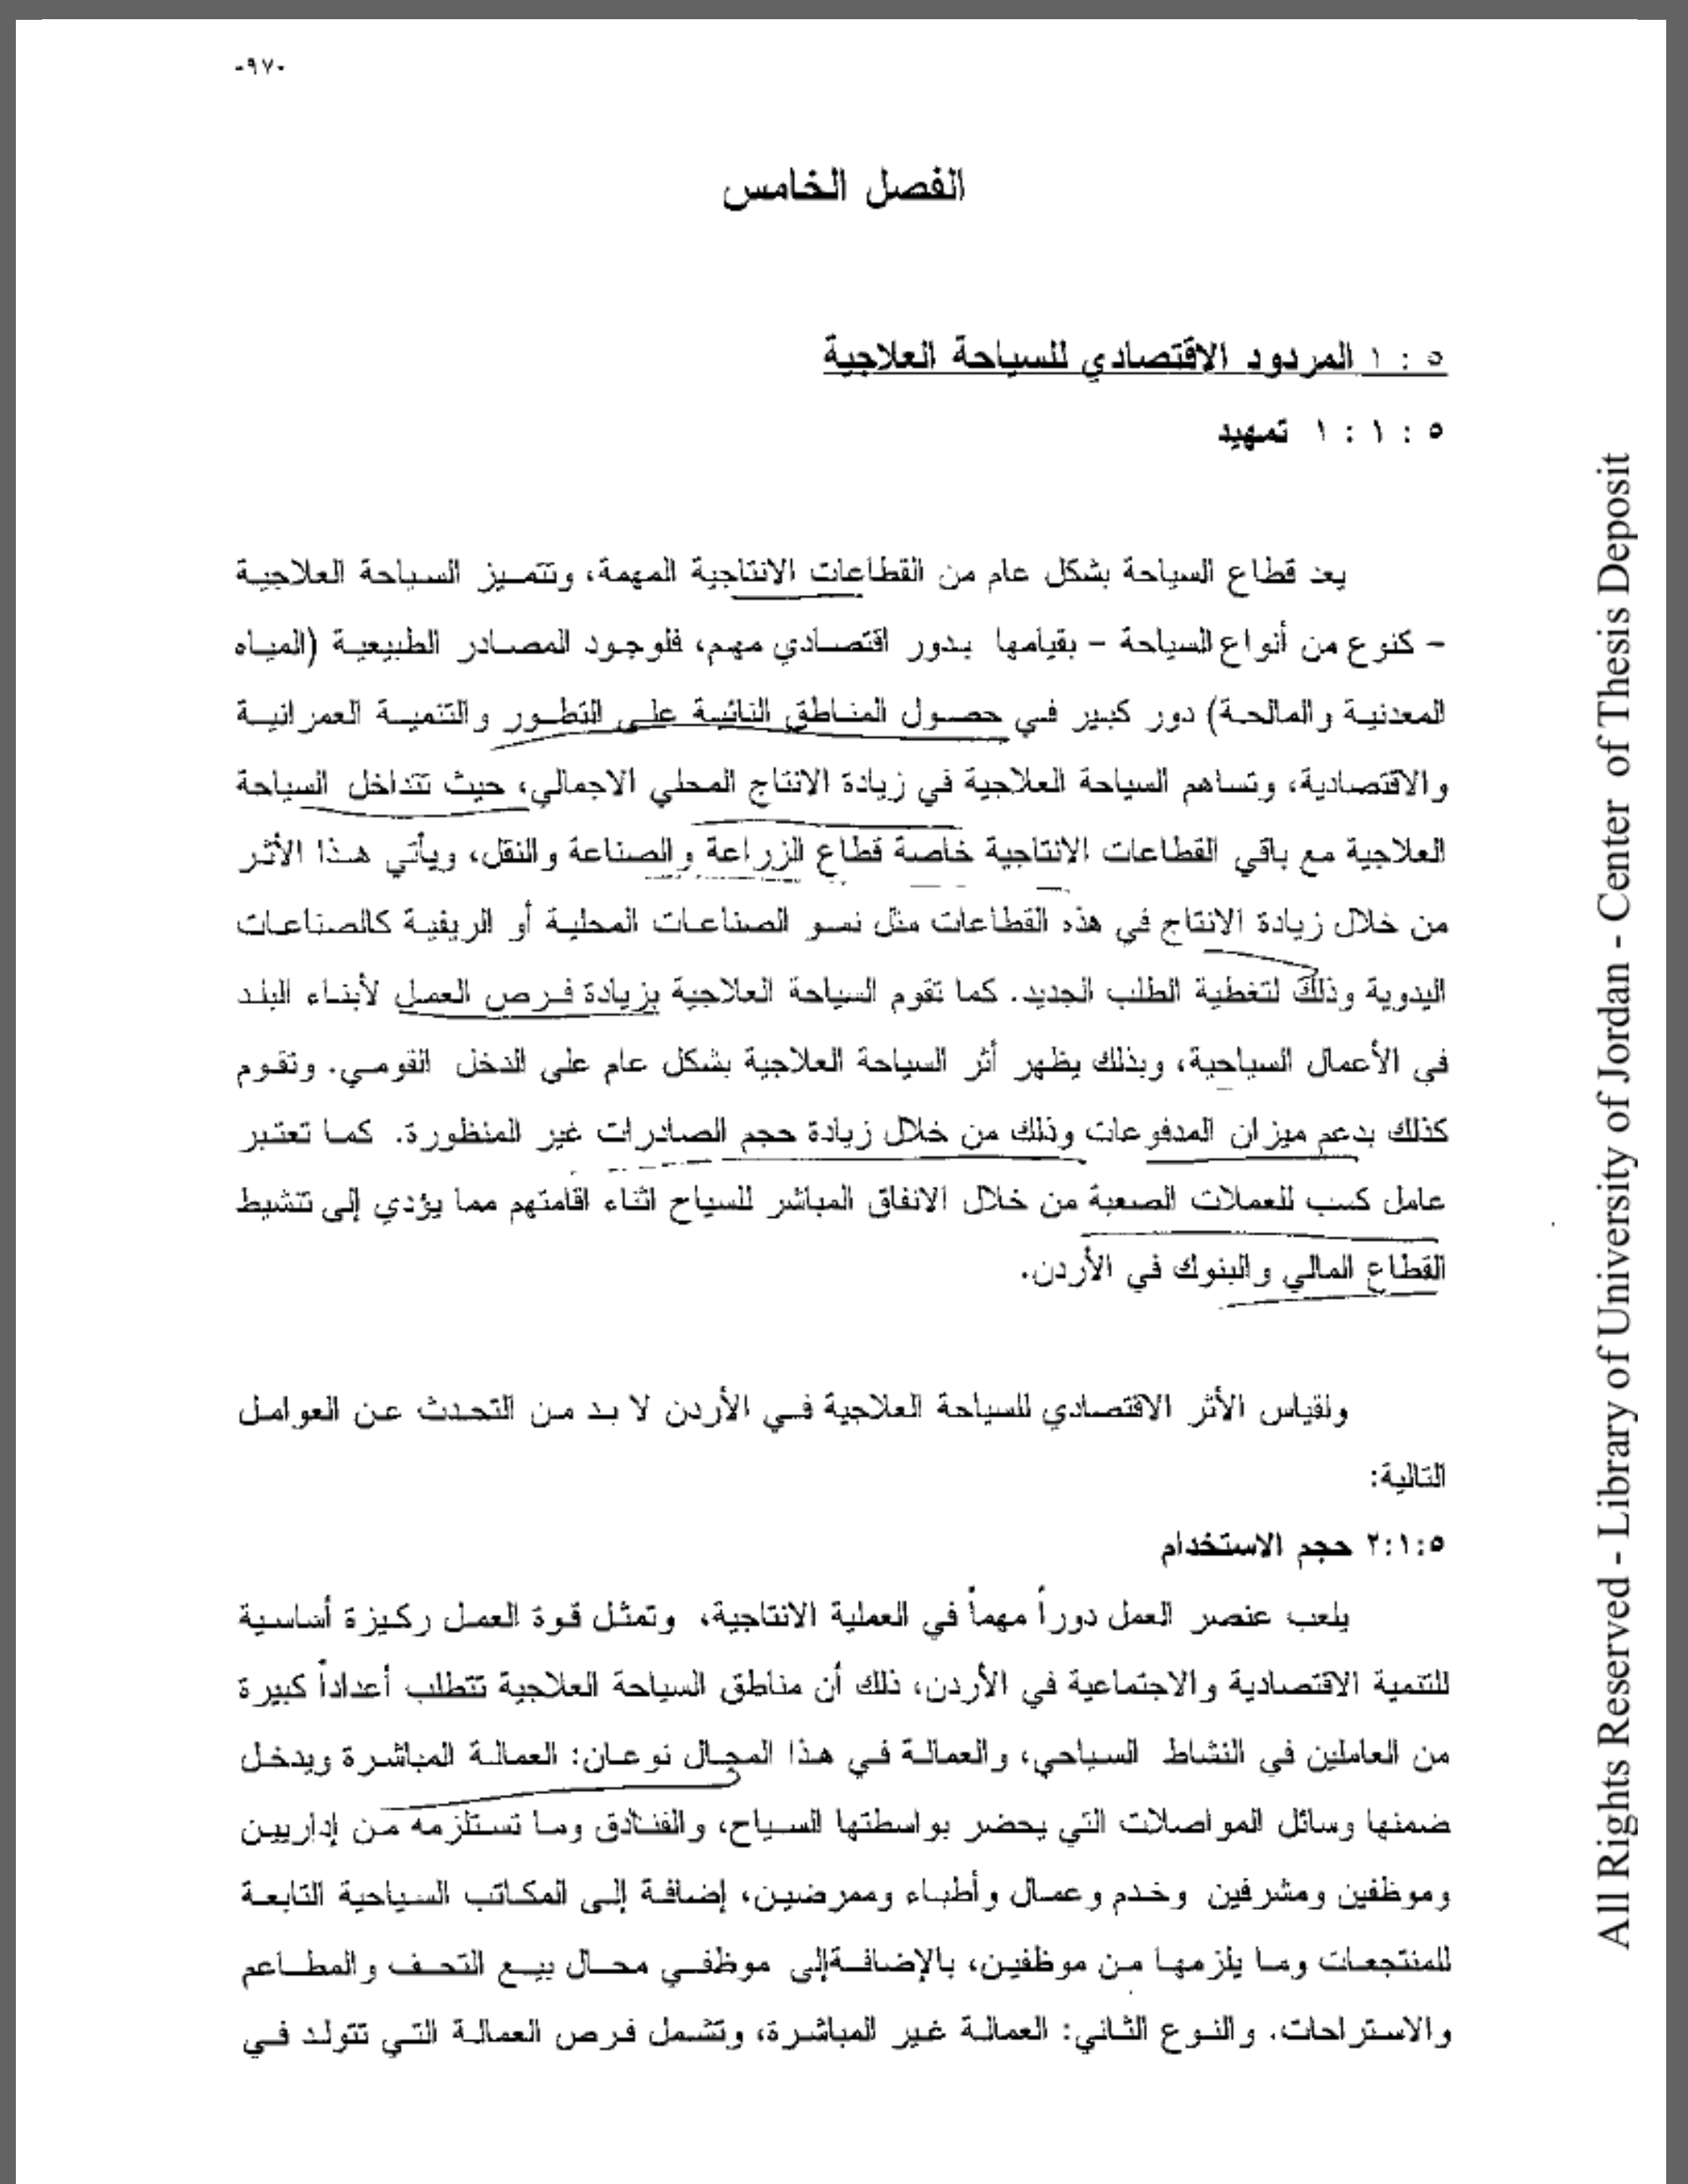 -٩٧-
الفصل الخامس
٥ : ١ المردود الاقتصادي للسياحة العلاجية
٥ : ١ : ١ تمهيد
يعد قطاع السياحة بشكل عام من القطاعات الانتاجية المهمة، وتتميز السياحة العلاجية
- كنوع من أنواع السياحة - بقيامها بدور اقتصادي مهم، فلوجود المصادر الطبيعية (المياه
المعدنية والمالحة) دور كبير في حصول المناطق النائية على التطور والتنمية العمرانية
والاقتصادية، وتساهم السياحة العلاجية في زيادة الانتاج المحلي الاجمالي، حيث تتداخل السياحة
العلاجية مع باقي القطاعات الانتاجية خاصة قطاع الزراعة والصناعة والنقل، ويأتي هذا الأثر
من خلال زيادة الانتاج في هذه القطاعات مثل نمو الصناعات المحلية أو الريفية كالصناعات
اليدوية وذلك لتغطية الطلب الجديد. كما تقوم السياحة العلاجية بزيادة فرص العمل لأبناء البلد
في الأعمال السياحية، وبذلك يظهر أثر السياحة العلاجية بشكل عام على الدخل القومي. وتقوم
كذلك بدعم ميزان المدفوعات وذلك من خلال زيادة حجم الصادرات غير المنظورة. كما تعتبر
عامل كسب للعملات الصعبة من خلال الانفاق المباشر للسياح اثناء اقامتهم مما يؤدي إلى تنشيط
القطاع المالي والبنوك في الأردن.
ولقياس الأثر الاقتصادي للسياحة العلاجية في الأردن لا بد من التحدث عن العوامل
التالية:
٢:١:٥ حجم الاستخدام
يلعب عنصر العمل دوراً مهماً في العملية الانتاجية، وتمثل قوة العمل ركيزة أساسية
للتنمية الاقتصادية والاجتماعية في الأردن، ذلك أن مناطق السياحة العلاجية تتطلب أعداداً كبيرة
من العاملين في النشاط السياحي، والعمالة في هذا المجال نوعان: العمالة المباشرة ويدخل
ضمنها وسائل المواصلات التي يحضر بواسطتها السياح، والفنادق وما تستلزمه من إداريين
وموظفين ومشرفين وخدم وعمال وأطباء وممرضين، إضافة إلى المكاتب السياحية التابعة
للمنتجعات وما يلزمها من موظفين، بالإضافةإلى موظفي محال بيع التحف والمطاعم
والاستراحات. والنوع الثاني: العمالة غير المباشرة، وتشمل فرص العمالة التي تتولد في
All Rights Reserved - Library of University of Jordan - Center of Thesis Deposit